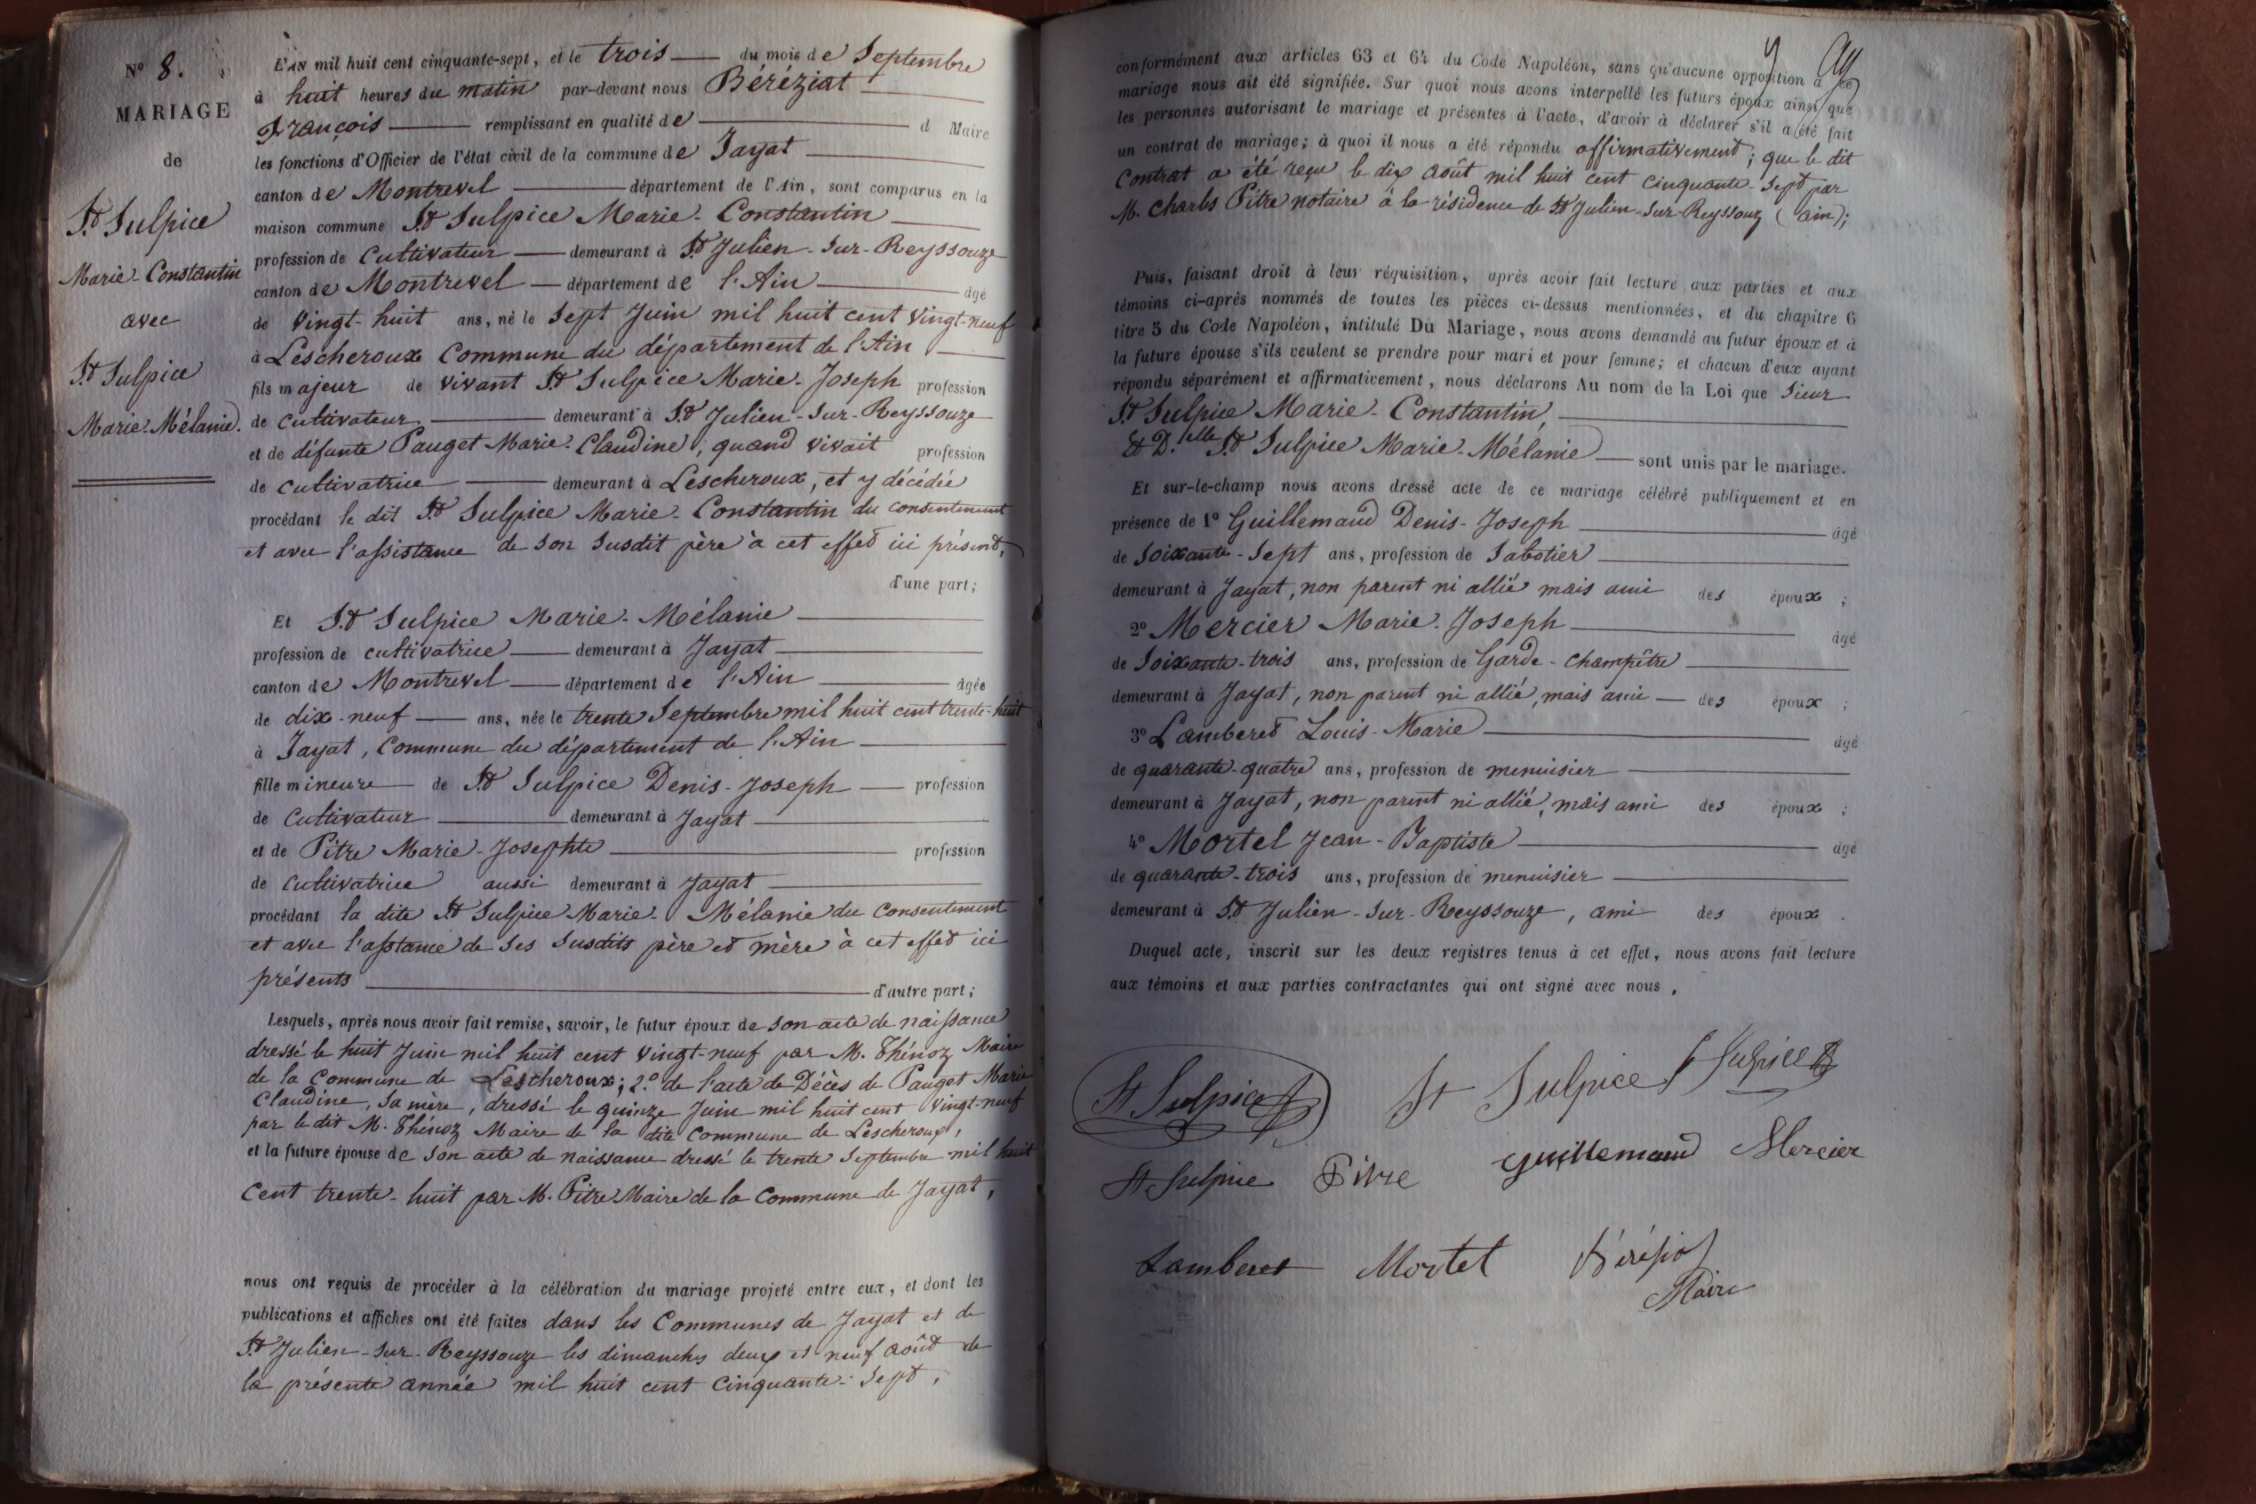 N° 8.
MARIAGE
de
St Sulpice
Marie-Constantin
avec
St Sulpice
Marie-Mélanie.
L'AN mil huit cent cinquante-sept, et le trois du mois de Septembre
à huit heures du matin par-devant nous Béréziat
François remplissant en qualité de d Maire
les fonctions d'Officier de l'état civil de la commune de Jayat
canton de Montrevel département de l'Ain, sont comparus en la
maison commune St Sulpice Marie-Constantin
profession de cultivateur demeurant à St Julien-sur-Reyssouze
canton de Montrevel département de l'Ain âgé
de vingt-huit ans, né le sept Juin mil huit cent vingt-neuf
à Lescheroux commune du département de l'Ain
fils majeur de vivant St Sulpice Marie-Joseph profession
de cultivateur demeurant à St Julien-sur-Reyssouze
et de défunte Pauget Marie-Claudine, quand vivait profession
de cultivatrice demeurant à Lescheroux, et y décédée
procédant le dit St Sulpice Marie-Constantin du consentement
et avec l'assistance de son susdit père à cet effet ici présent,
d'une part;
Et St Sulpice Marie-Mélanie
profession de cultivatrice demeurant à Jayat
canton de Montrevel département de l'Ain âgée
de dix-neuf ans, née le trente Septembre mil huit cent trente-huit
à Jayat, commune du département de l'Ain
fille mineure de St Sulpice Denis-Joseph profession
de cultivateur demeurant à Jayat
et de Pitre Marie-Josephte profession
de cultivatrice aussi demeurant à Jayat
procédant la dite St Sulpice Marie-Mélanie du consentement
et avec l'asstance de ses susdits père et mère à cet effet ici
présents d'autre part;
Lesquels, après nous avoir fait remise, savoir, le futur époux de son acte de naissance
dressé le huit Juin mil huit cent vingt-neuf par M. Thénoz Maire
de la commune de Lescheroux; 2.° de l'acte de Décès de Pauget Marie
Claudine, sa mère, dressé le quinze Juin mil huit cent vingt-neuf
par le dit M. Thénoz Maire de la dite commune de Lescheroux,
et la future épouse de son acte de naissance dressé le trente Septembre mil huit
cent trente-huit par M. Pitre Maire de la commune de Jayat,
nous ont requis de procéder à la célébration du mariage projeté entre eux, et dont les
publications et affiches ont été faites dans les Communes de Jayat et de
St Julien-sur-Reyssouze les dimanches deux et neuf août de
la présente année mil huit cent cinquante-sept,
conformément aux articles 63 et 64 du Code Napoléon, sans qu'aucune opposition à ce
mariage nous ait été signifiée. Sur quoi nous avons interpellé les futurs époux ainsi que
les personnes autorisant le mariage et présentes à l'acte, d'avoir à déclarer s'il a été fait
un contrat de mariage; à quoi il nous a été répondu affirmativement; que le dit
contrat a été reçu le dix août mil huit cent cinquante-sept par
M. Charles Pitre notaire à la résidence de St Julien-sur-Reyssouz (ain);
Puis, faisant droit à leur réquisition, après avoir fait lecture aux parties et aux
témoins ci-après nommés de toutes les pièces ci-dessus mentionnées, et du chapitre 6
titre 5 du Code Napoléon, intitulé Du Mariage, nous avons demandé au futur époux et à
la future épouse s'ils veulent se prendre pour mari et pour femme; et chacun d'eux ayant
répondu séparément et affirmativement, nous déclarons Au nom de la Loi que Sieur
St Sulpice Marie-Constantin,
Et D.elle St Sulpice Marie-Mélanie sont unis par le mariage.
Et sur-le-champ nous avons dressé acte de ce mariage célébré publiquement et en
présence de 1° Guillemaud Denis-Joseph âgé
de soixante-sept ans, profession de Sabotier
demeurant à Jayat, non parent ni allié mais ami des époux ;
2° Mercier Marie-Joseph âgé
de soixante-trois ans, profession de Garde-champêtre
demeurant à Jayat, non parent ni allié, mais ami des époux ;
3° Lamberet Louis-Marie âgé
de quarante-quatre ans, profession de menuisier
demeurant à Jayat, non parent ni allié, mais ami des époux ;
4° Mortel Jean-Baptiste âgé
de quarante-trois ans, profession de menuisier
demeurant à St Julien-sur-Reyssouze, ami des époux .
Duquel acte, inscrit sur les deux registres tenus à cet effet, nous avons fait lecture
aux témoins et aux parties contractantes qui ont signé avec nous.
St Sulpice St Sulpice St Sulpice
St Sulpice Pitre Guillemaud Mercier
Lamberet Mortel Béréziat
Maire